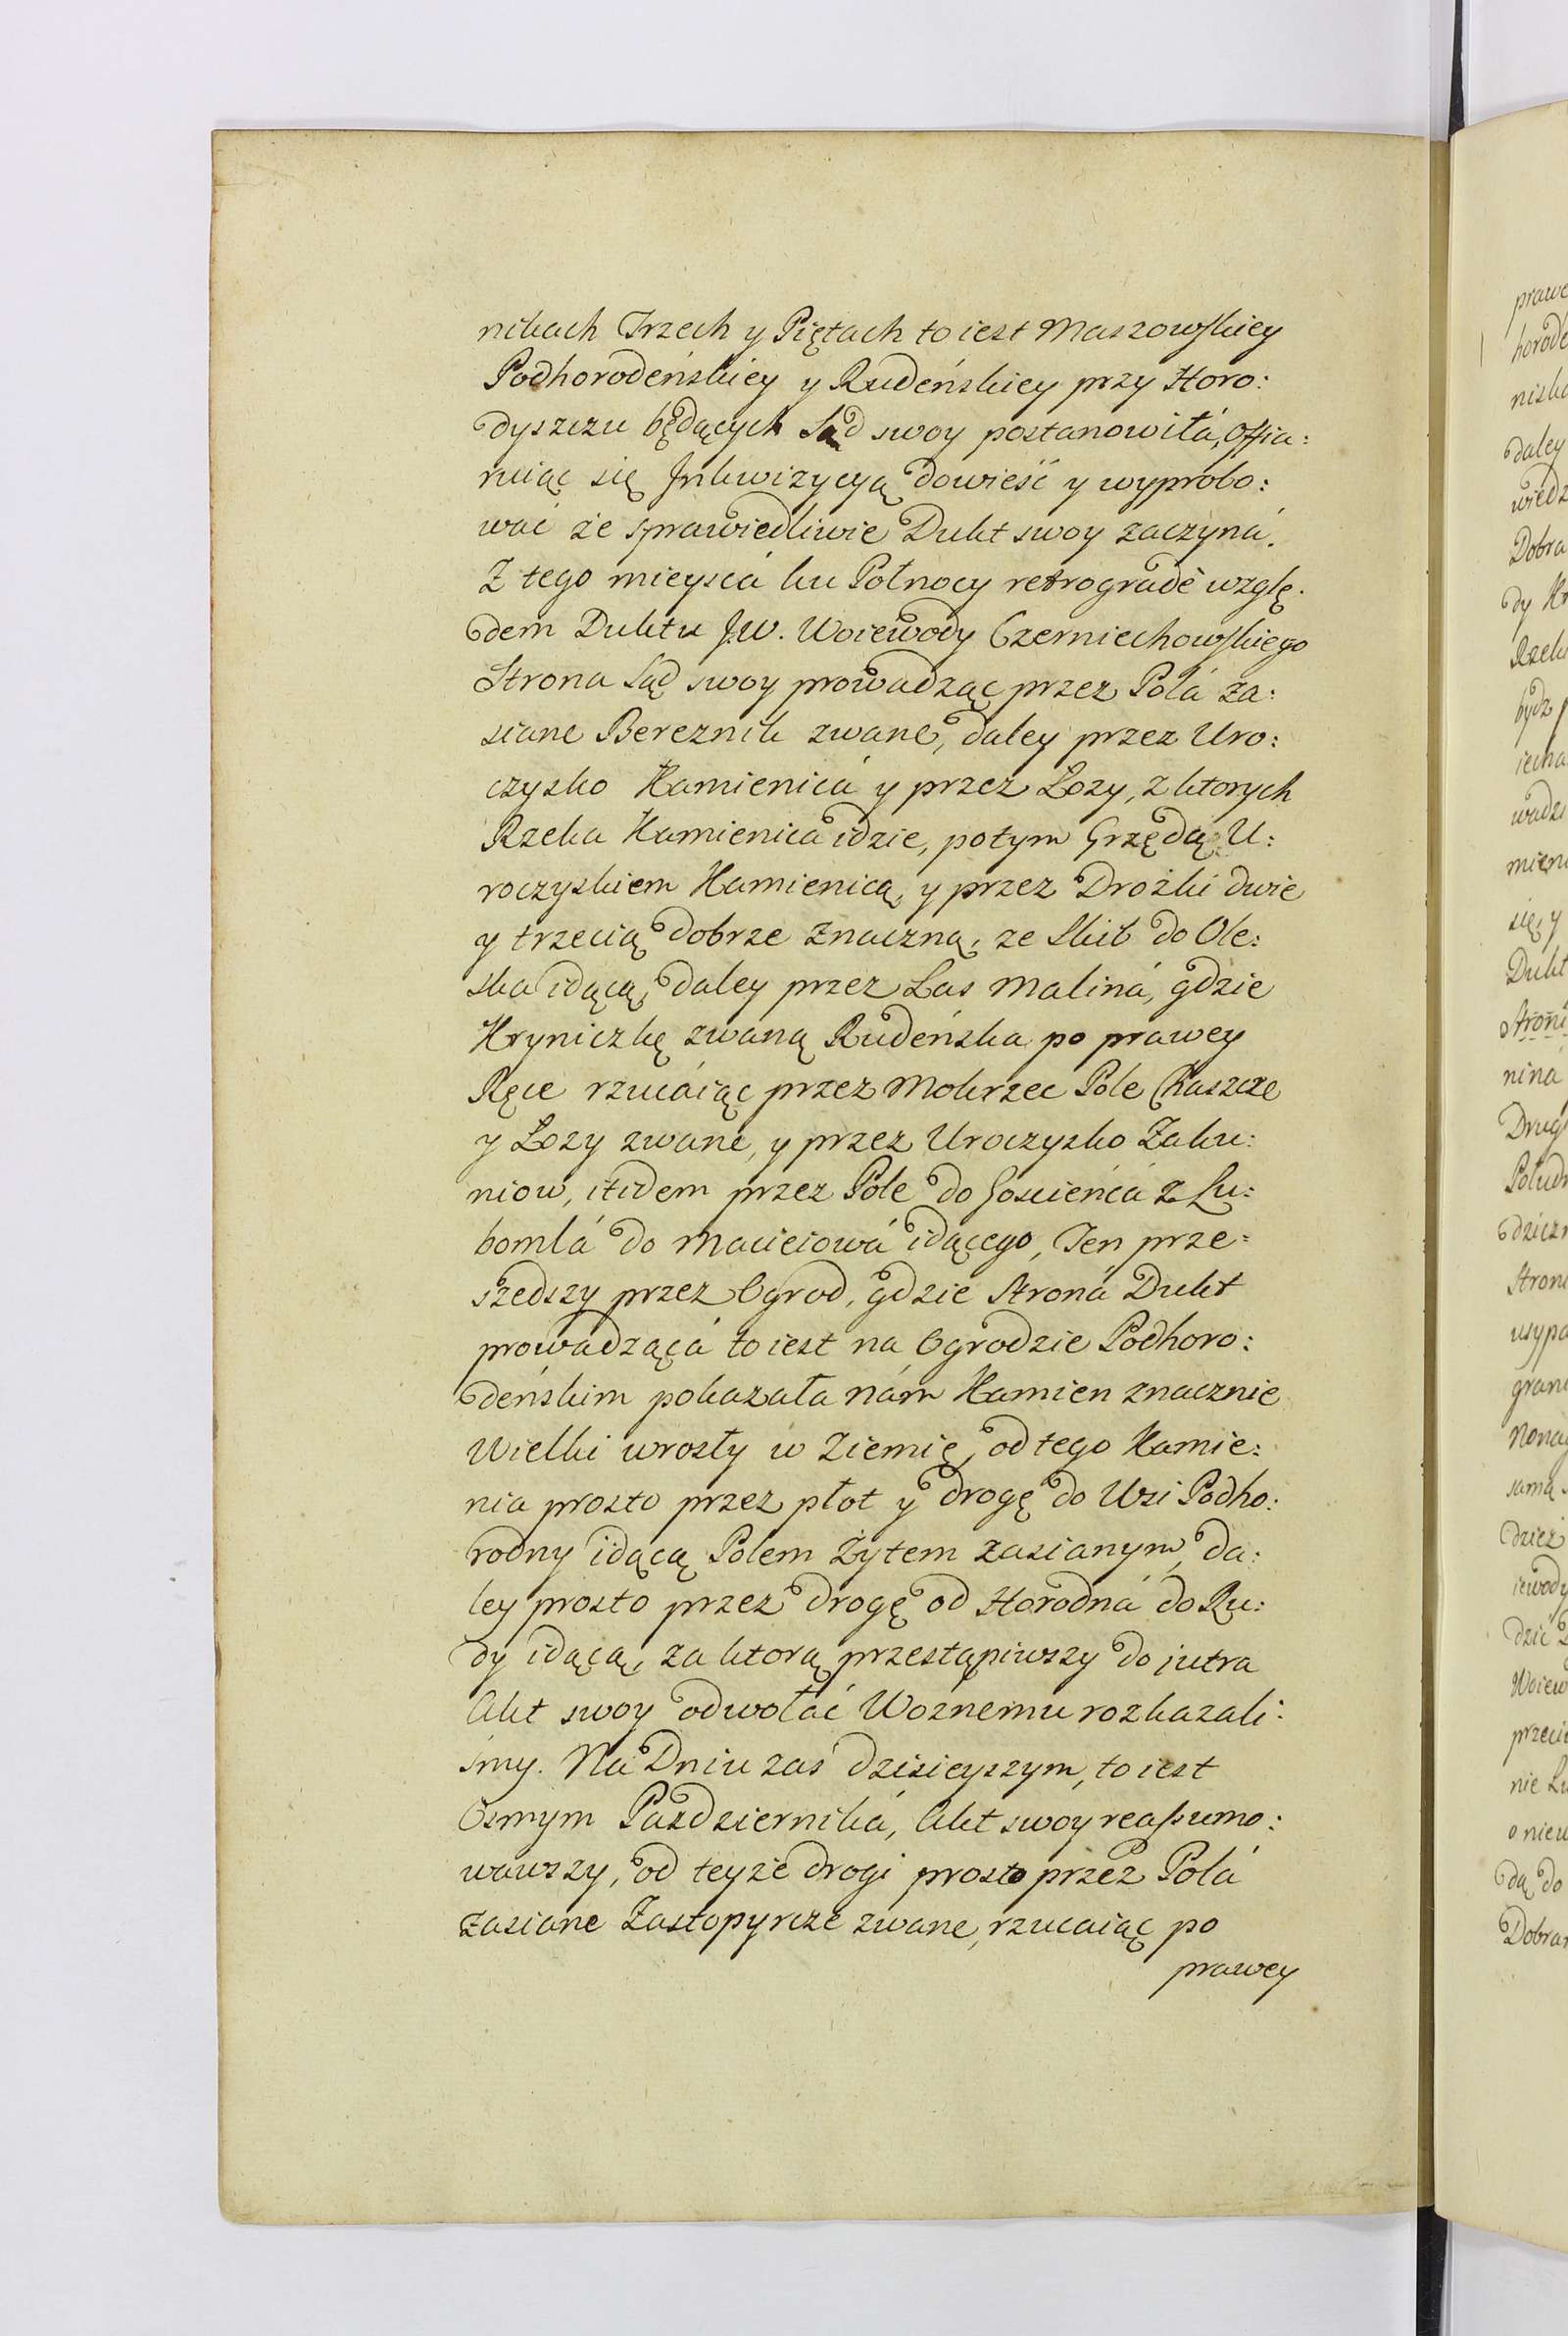 nikach Trzech y Piętach to iest Maszowskiey
Podhorodeńskiey y Rudeńskiey przy Horo:
dyszczu będących Sąd swoy postanowiłá, Offia:
ruiąc się Jnkwizycyą dowieść y wyprobo:
wać że sprawiedliwie Dukt swoy zaczyná.
Z tego mieyscá ku Połnocy retrogradè wzglę:
dem Duktu J.W. Woiewody Czerniechowskiego
Strona Sąd swoy prowadząc przez Polá za:
siane Bereznik zwane, daley przez Uro:
czysko Kamienicá y przez Łozy, z ktorych
Rzeka Kamienica idzie, potym Grzędą U:
roczyskiem Kamienicą, y przez Drożki dwie
y trzecią dobrze znaczną, ze Skib do Ole:
ska idącą, daley przez Las Maliná, gdzie
Kryniczkę zwaną Rudeńska po prawey
Ręce rzucáiąc przez Mokrzec Pole Chaszcze
y Łozy zwane, y przez Uroczysko Zaku:
niow, itidem przez Pole do Gościeńcá z Lu:
bomlá do Macieiowá idącego, Ten prze:
szedszy przez Ogrod, gdzie Stroná Dukt
prowadzącá to iest na Ogrodzie Podhoro:
deńskim pokazała nám Kamien znacznie
Wielki wrosły w Ziemię, od tego Kamie:
nia prosto przez płot y drogę do Wsi Podho:
rodny idącą Polem Żytem zasianym, da:
ley prosto przez drogę od Horodná do Ru:
dy idącą, za ktorą przestąpiwszy do jutra
Akt swoy odwołać Woznemu rozkazali:
śmy. Ná Dniu zaś dzisieyszym, to iest
Osmym Pazdziernika, Akt swoy reassumo:
wawszy, od teyże drogi prosto przez Polá
zasiane Zastopyrcze zwane, rzucaiąc po
prawey